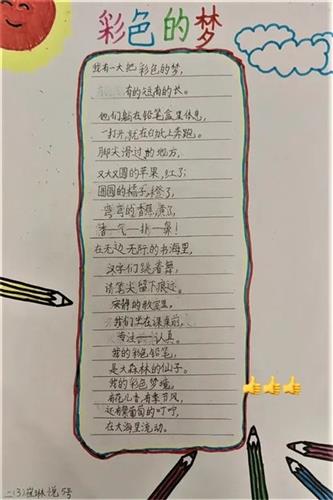 彩色的梦
我有一大把彩色的梦,
有的短有的长。
他们躺在铅笔盒里休息,
一打开,就在白纸上奔跑。
脚尖滑过的地方,
又大又圆的苹果,红了;
圆圆的橘子,橙了,
弯弯的香蕉,黄了,
香一气一扑一鼻!
在无边无际的书海里,
汉字们跳着舞,
请笔尖留下痕迹。
安静的教室里,
我们坐在课桌前,
专注——认真。
我的彩色铅笔,
是大森林的仙子。
我的彩色梦境,
有花儿香,有季节风,
还有紫葡萄的叮咛,
在大海里流动。
二(3)崔琳说